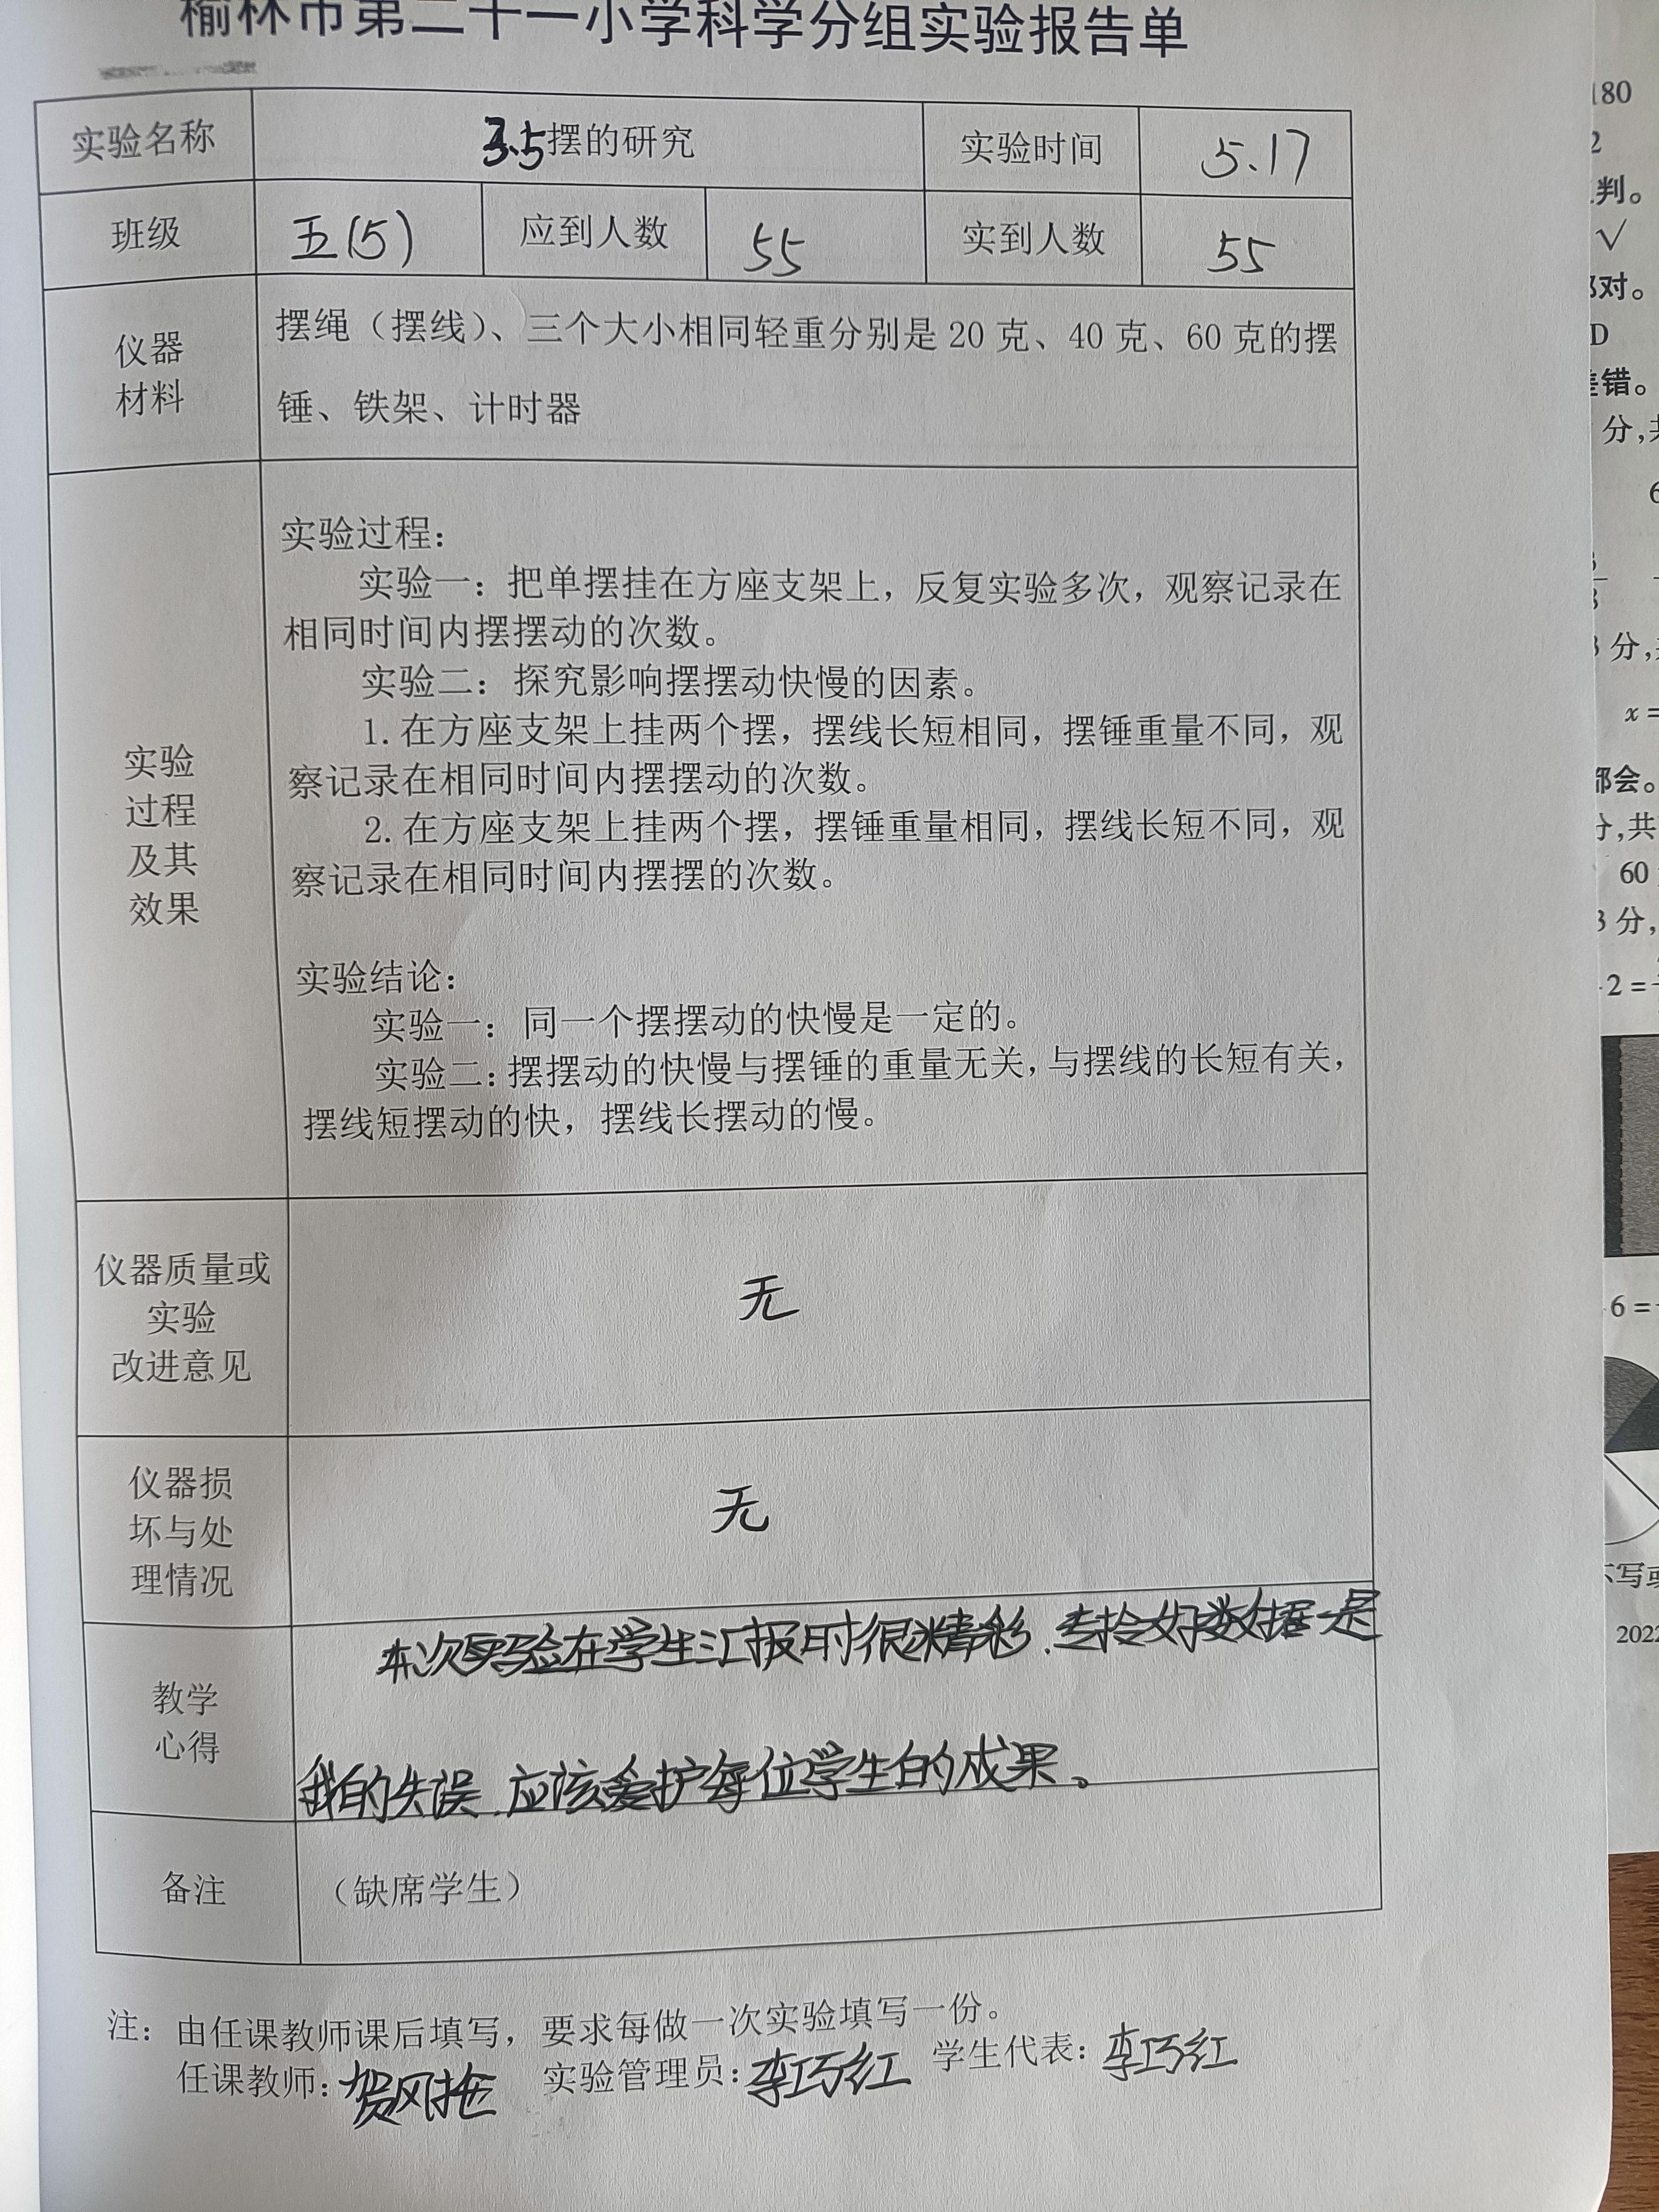 榆林市第二十一小学科学分组实验报告单
实验名称 3.5摆的研究 实验时间 5.17
班级 五(5) 应到人数 55 实到人数 55
仪器
材料
摆绳（摆线）、三个大小相同轻重分别是 20 克、40 克、60 克的摆
锤、铁架、计时器
实验
过程
及其
效果
实验过程：
实验一：把单摆挂在方座支架上，反复实验多次，观察记录在
相同时间内摆摆动的次数。
实验二：探究影响摆摆动快慢的因素。
1. 在方座支架上挂两个摆，摆线长短相同，摆锤重量不同，观
察记录在相同时间内摆摆动的次数。
2. 在方座支架上挂两个摆，摆锤重量相同，摆线长短不同，观
察记录在相同时间内摆摆的次数。
实验结论：
实验一：同一个摆摆动的快慢是一定的。
实验二：摆摆动的快慢与摆锤的重量无关，与摆线的长短有关，
摆线短摆动的快，摆线长摆动的慢。
仪器质量或
实验
改进意见
无
仪器损
坏与处
理情况
无
教学
心得
本次实验在学生汇报时很精彩.专拾好数据是
我的失误.应该爱护每位学生的成果。
备注
（缺席学生）
注：由任课教师课后填写，要求每做一次实验填写一份。
任课教师: 贺风 实验管理员: 李巧红 学生代表: 李巧红
180
2
判。
√
对。
D
错。
分,共
6
分,
x=
都会。
分,共
60
3 分,
2=
6=
不写或
2022